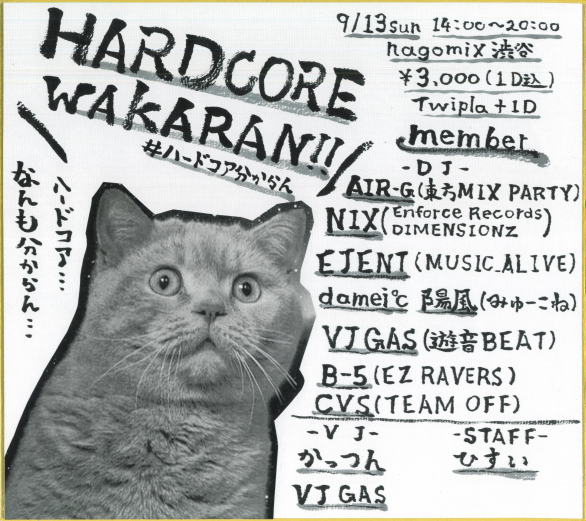 HARDCORE
WAKARAN!!
#ハードコア分からん
ハードコア…
なんも分からん…
9/13sun 14:00~20:00
nagomix 渋谷
¥3,000(1D込)
Twipla+1D
member
-DJ-
AIR-G(東方MIX PARTY)
NIX(Enforce Records
DIMENSIONZ)
EJENT(MUSIC_ALIVE)
damei℃ 陽風(みゅーこね)
VJ GAS(遊音BEAT)
B-5(EZ RAVERS)
CVS(TEAM OFF)
-VJ-
かっつん
VJ GAS
-STAFF-
ひすい